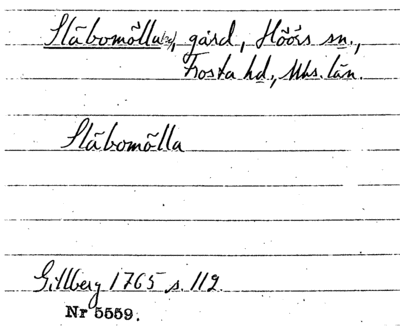 Släbomölla, gård, Höörs sn.,
Frosta hd., Mhs. län.
Släbomölla
Gillberg 1765 s. 112.
Nr 5559.